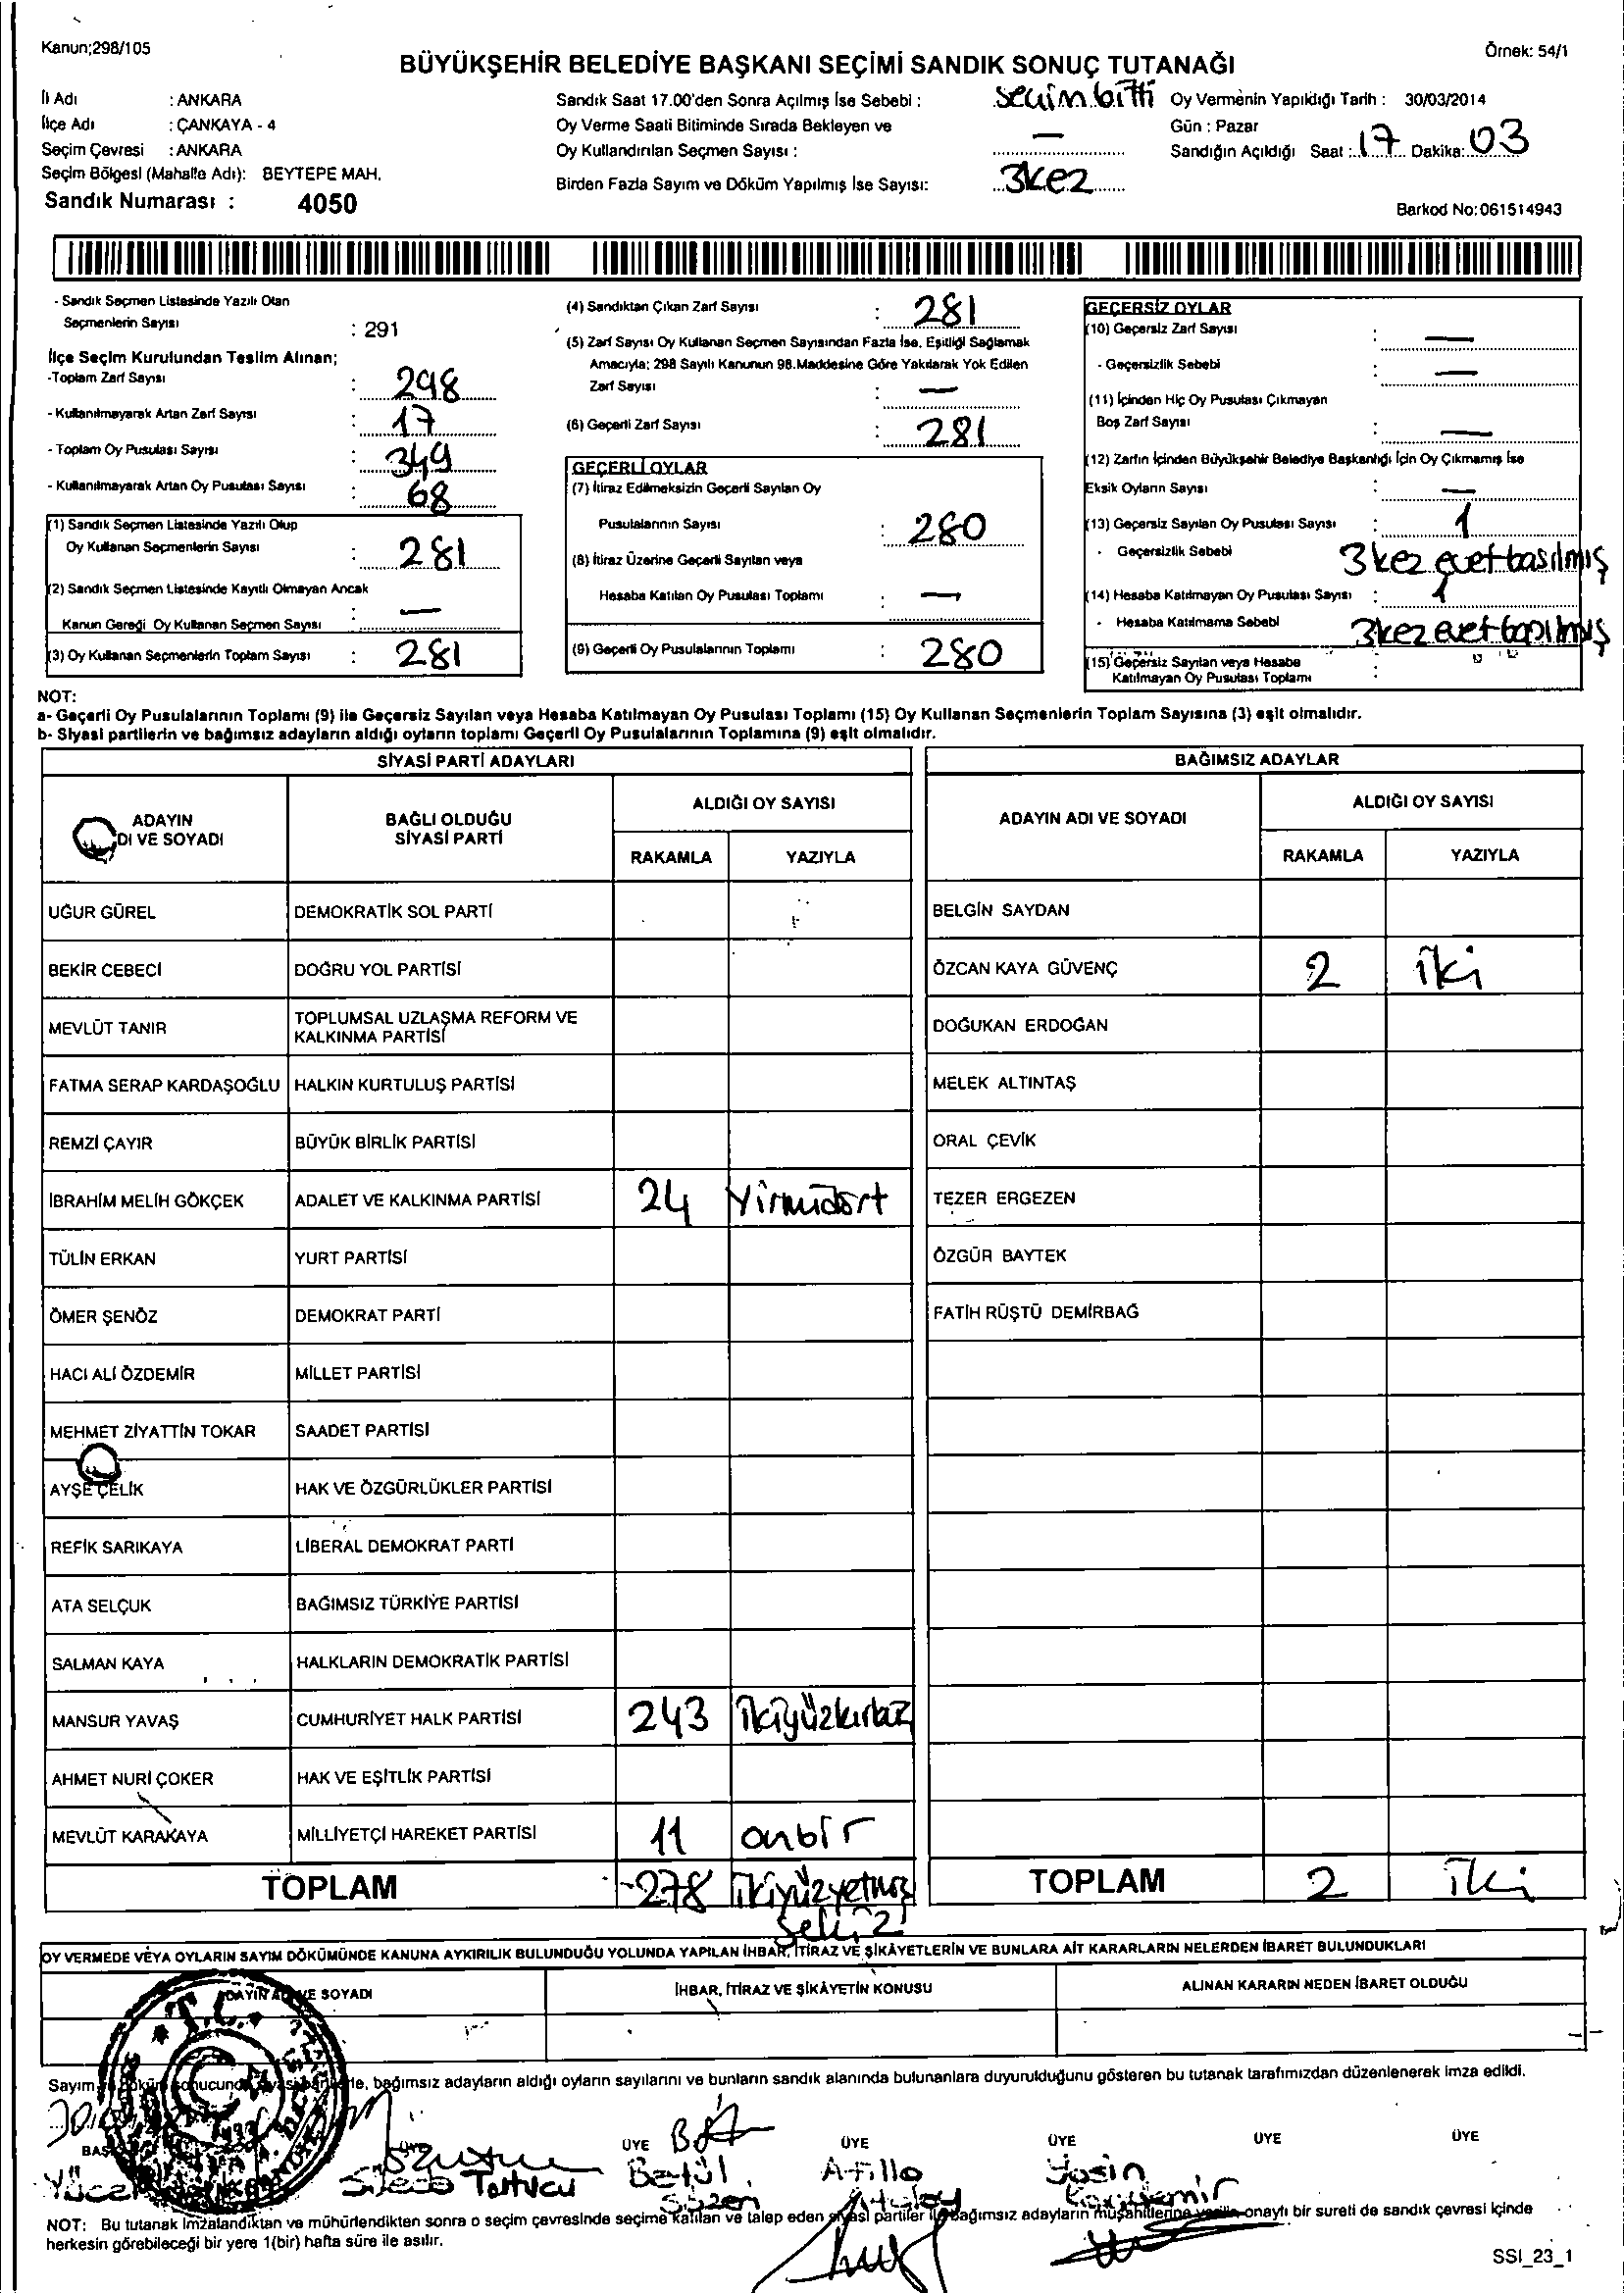 Kanun;298/105
Örnek: 54/1
BÜYÜKŞEHİR BELEDİYE BAŞKANI SEÇİMİ SANDIK SONUÇ TUTANAĞI
İl Adı : ANKARA
İlçe Adı : ÇANKAYA - 4
Seçim Çevresi : ANKARA
Seçim Bölgesi (Mahalle Adı): BEYTEPE MAH.
Sandık Numarası : 4050
Sandık Saat 17.00'den Sonra Açılmış İse Sebebi : seçim bitti
Oy Verme Saati Bitiminde Sırada Bekleyen ve
Oy Kullandırılan Seçmen Sayısı : —
Birden Fazla Sayım ve Döküm Yapılmış İse Sayısı: 3kez
Oy Vermenin Yapıldığı Tarih : 30/03/2014
Gün : Pazar
Sandığın Açıldığı Saat : 17 Dakika: 03
Barkod No:061514943
- Sandık Seçmen Listesinde Yazılı Olan
Seçmenlerin Sayısı : 291
İlçe Seçim Kurulundan Teslim Alınan;
-Toplam Zarf Sayısı : 298
- Kullanılmayarak Artan Zarf Sayısı : 17
- Toplam Oy Pusulası Sayısı : 349
- Kullanılmayarak Artan Oy Pusulası Sayısı : 68
(1) Sandık Seçmen Listesinde Yazılı Olup
Oy Kullanan Seçmenlerin Sayısı : 281
(2) Sandık Seçmen Listesinde Kayıtlı Olmayan Ancak
Kanun Gereği Oy Kullanan Seçmen Sayısı : —
(3) Oy Kullanan Seçmenlerin Toplam Sayısı : 281
(4) Sandıktan Çıkan Zarf Sayısı : 281
(5) Zarf Sayısı Oy Kullanan Seçmen Sayısından Fazla İse, Eşitliği Sağlamak
Amacıyla; 298 Sayılı Kanunun 98.Maddesine Göre Yakılarak Yok Edilen
Zarf Sayısı : —
(6) Geçerli Zarf Sayısı : 281
GEÇERLİ OYLAR
(7) İtiraz Edilmeksizin Geçerli Sayılan Oy
Pusulalarının Sayısı : 280
(8) İtiraz Üzerine Geçerli Sayılan veya
Hesaba Katılan Oy Pusulası Toplamı : —
(9) Geçerli Oy Pusulalarının Toplamı : 280
GEÇERSİZ OYLAR
(10) Geçersiz Zarf Sayısı : —
- Geçersizlik Sebebi : —
(11) İçinden Hiç Oy Pusulası Çıkmayan
Boş Zarf Sayısı : —
(12) Zarfın İçinden Büyükşehir Belediye Başkanlığı İçin Oy Çıkmamış İse
Eksik Oyların Sayısı : —
(13) Geçersiz Sayılan Oy Pusulası Sayısı : 1
- Geçersizlik Sebebi 3 kez evet basılmış
(14) Hesaba Katılmayan Oy Pusulası Sayısı : 1
- Hesaba Katılmama Sebebi 3kez evet
(15) Geçersiz Sayılan veya Hesaba
Katılmayan Oy Pusulası Toplamı :
NOT:
a- Geçerli Oy Pusulalarının Toplamı (9) ile Geçersiz Sayılan veya Hesaba Katılmayan Oy Pusulası Toplamı (15) Oy Kullanan Seçmenlerin Toplam Sayısına (3) eşit olmalıdır.
b- Siyasi partilerin ve bağımsız adayların aldığı oyların toplamı Geçerli Oy Pusulalarının Toplamına (9) eşit olmalıdır.
SİYASİ PARTİ ADAYLARI
ADAYIN
DI VE SOYADI
BAĞLI OLDUĞU
SİYASİ PARTİ
ALDIĞI OY SAYISI
RAKAMLA YAZIYLA
UĞUR GÜREL DEMOKRATİK SOL PARTİ
BEKİR CEBECİ DOĞRU YOL PARTİSİ
MEVLÜT TANIR TOPLUMSAL UZLAŞMA REFORM VE
KALKINMA PARTİSİ
FATMA SERAP KARDAŞOĞLU HALKIN KURTULUŞ PARTİSİ
REMZİ ÇAYIR BÜYÜK BİRLİK PARTİSİ
İBRAHİM MELİH GÖKÇEK ADALET VE KALKINMA PARTİSİ 24 Yirmidört
TÜLİN ERKAN YURT PARTİSİ
ÖMER ŞENÖZ DEMOKRAT PARTİ
HACI ALİ ÖZDEMİR MİLLET PARTİSİ
MEHMET ZİYATTİN TOKAR SAADET PARTİSİ
AYŞE ÇELİK HAK VE ÖZGÜRLÜKLER PARTİSİ
REFİK SARIKAYA LİBERAL DEMOKRAT PARTİ
ATA SELÇUK BAĞIMSIZ TÜRKİYE PARTİSİ
SALMAN KAYA HALKLARIN DEMOKRATİK PARTİSİ
MANSUR YAVAŞ CUMHURİYET HALK PARTİSİ 243
AHMET NURİ ÇOKER HAK VE EŞİTLİK PARTİSİ
MEVLÜT KARAKAYA MİLLİYETÇİ HAREKET PARTİSİ 11 onbir
TOPLAM 278 ikiyüzyetmiş
sekiz
BAĞIMSIZ ADAYLAR
ADAYIN ADI VE SOYADI
ALDIĞI OY SAYISI
RAKAMLA YAZIYLA
BELGİN SAYDAN
ÖZCAN KAYA GÜVENÇ 2 iki
DOĞUKAN ERDOĞAN
MELEK ALTINTAŞ
ORAL ÇEVİK
TEZER ERGEZEN
ÖZGÜR BAYTEK
FATİH RÜŞTÜ DEMİRBAĞ
TOPLAM 2 iki
OY VERMEDE VEYA OYLARIN SAYIM DÖKÜMÜNDE KANUNA AYKIRILIK BULUNDUĞU YOLUNDA YAPILAN İHBAR, İTİRAZ VE ŞİKÂYETLERİN VE BUNLARA AİT KARARLARIN NELERDEN İBARET BULUNDUKLARI
VE SOYADI
İHBAR, İTİRAZ VE ŞİKÂYETİN KONUSU
ALINAN KARARIN NEDEN İBARET OLDUĞU
T.C.
Sayım bağımsız adayların aldığı oyların sayılarını ve bunların sandık alanında bulunanlara duyurulduğunu gösteren bu tutanak tarafımızdan düzenlenerek imza edildi.
ÜYE ÜYE ÜYE ÜYE ÜYE
Yücel Tortucu Betül Atilla Yasin
Sözen
NOT: Bu tutanak imzalandıktan ve mühürlendikten sonra o seçim çevresinde seçime katılan ve talep eden siyasi partiler ile bağımsız adayların müşahitlerine onaylı bir sureti de sandık çevresi içinde
herkesin görebileceği bir yere 1(bir) hafta süre ile asılır.
SSI_23_1